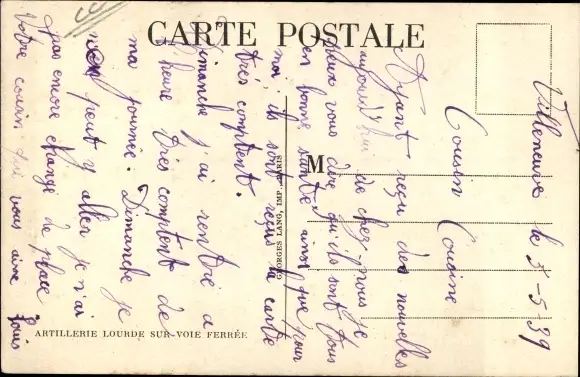 CARTE POSTALE
M
GEORGES LANG, IMP., PARIS
ARTILLERIE LOURDE SUR VOIE FERRÉE
Villeneuve le 5-5-39
Cousin Cousine
Ayant reçu des nouvelles
aujourd'hui de chez nous je
peux vous dire qu'ils sont tous
en bonne santé ainsi que pour
moi, ils sont reçus la carte
très comptent.
Dimanche j'ai rentré a
heure très comptent de
ma journée. Dimanche je
peut y aller je n'ai
pas encore change de place
Votre cousin qui vous aime Louis